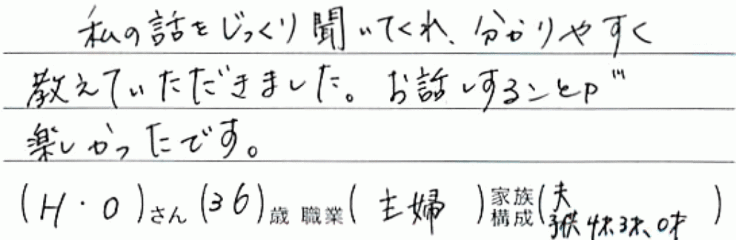 私の話をじっくり聞いてくれ、分かりやすく
教えていただきました。お話しすることが
楽しかったです。
(H・O)さん(36)歳 職業(主婦)家族構成(夫
子供4才、3才、0才)